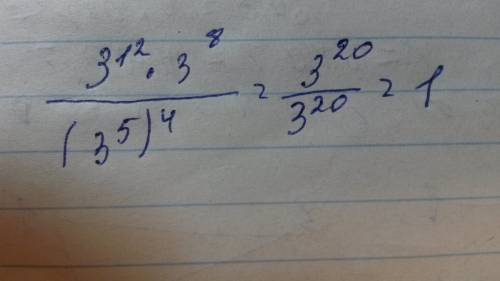 3¹² · 3⁸ / (3⁵)⁴ = 3²⁰ / 3²⁰ = 1